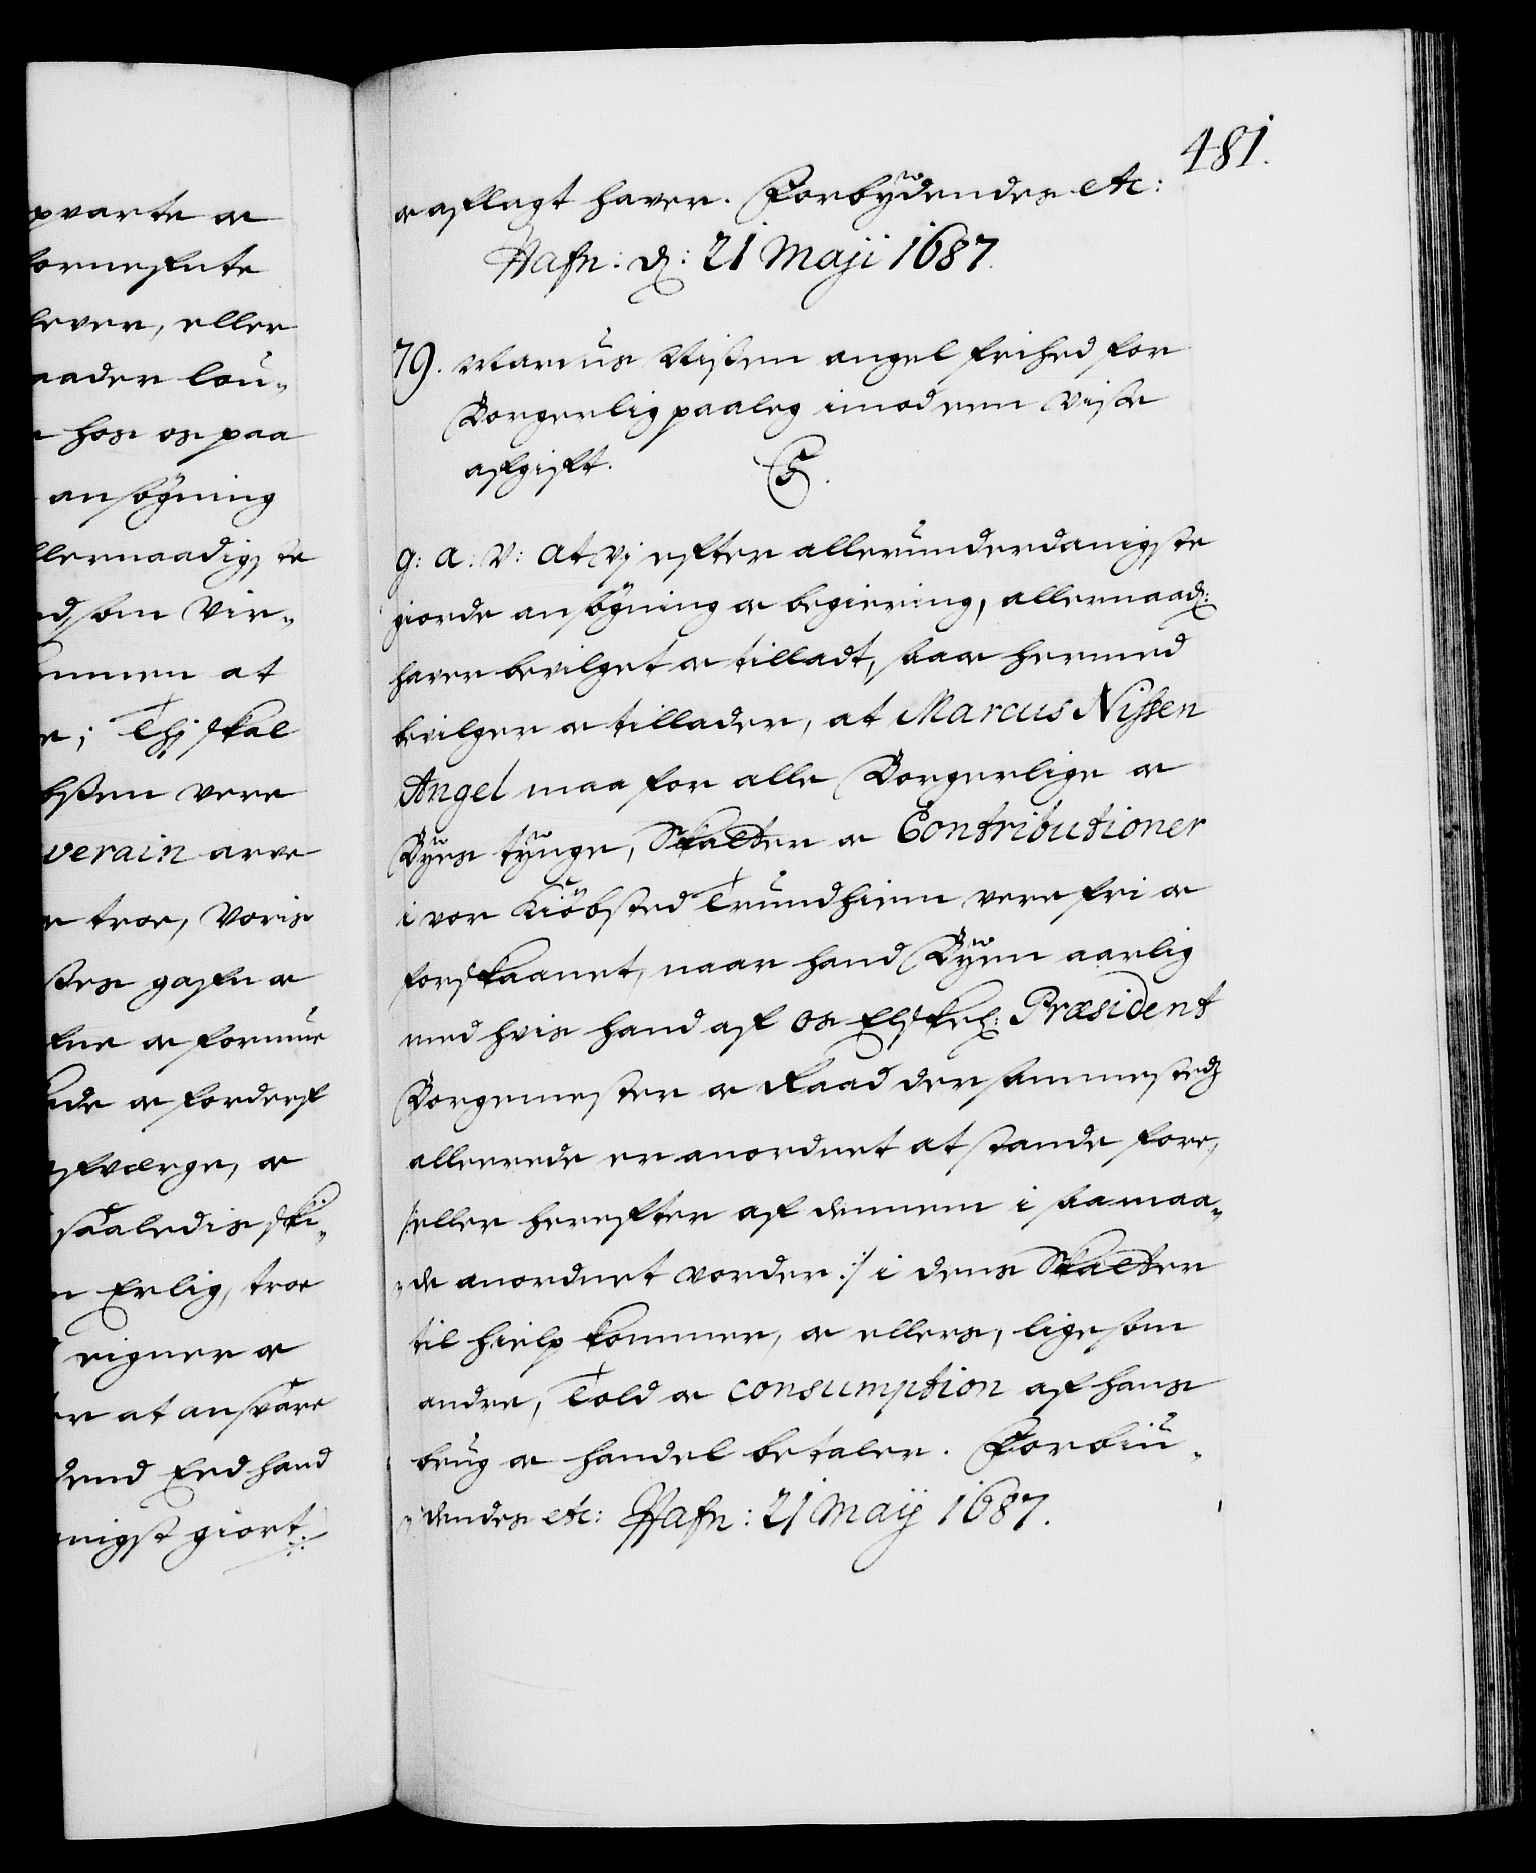 pvarte oc
ornefnte
lever, eller
aader lou-
hos os paa
ansögning
llernaadigste
d, som Vir-
mmen at
e; Thj skal
bsten vere
verain arve
troe, Voris
stes gafn oc
oc formue
ade oc forderf
afværge, oc
saaledis ski-
Erlig, troe
eigner oc
er at ansvare
dend Eed hand
nigst giort
481.
oc aflagt haver. Forbydendes etc:
Hafn: d: 21 Maji 1687.
79. Marcus Nissen angel frihed for
Borgerlig paaleg imod een visse
afgift. C5.
G: A: V: At Vj efter allerunderdanigste
giorde ansögning oc begiering, allernaad:
haver bevilget oc tilladt, saa oc hermed
bevilger oc tillader, at Marcus Nissen
Angel maa for alle Borgerlige oc
Byes tynge, Skatter oc Contributioner
i vor Kiöbsted Trundhiem vere fri oc
forskaanet, naar hand Byen aarlig
med hvis hand af os Elskel: Præsident
Borgemester oc Raad der sammesteds
allerede er anordnet at stande fore,
/: eller herefter af dennem i saamaa-
de anordnet vorder :/ i dens Skatter
til hielp kommer, oc ellers, ligesom
andre, Told oc consumption af hans
brug oc handel betaler. Forbiu-
dendes etc: Hafn: 21 Maij 1687.